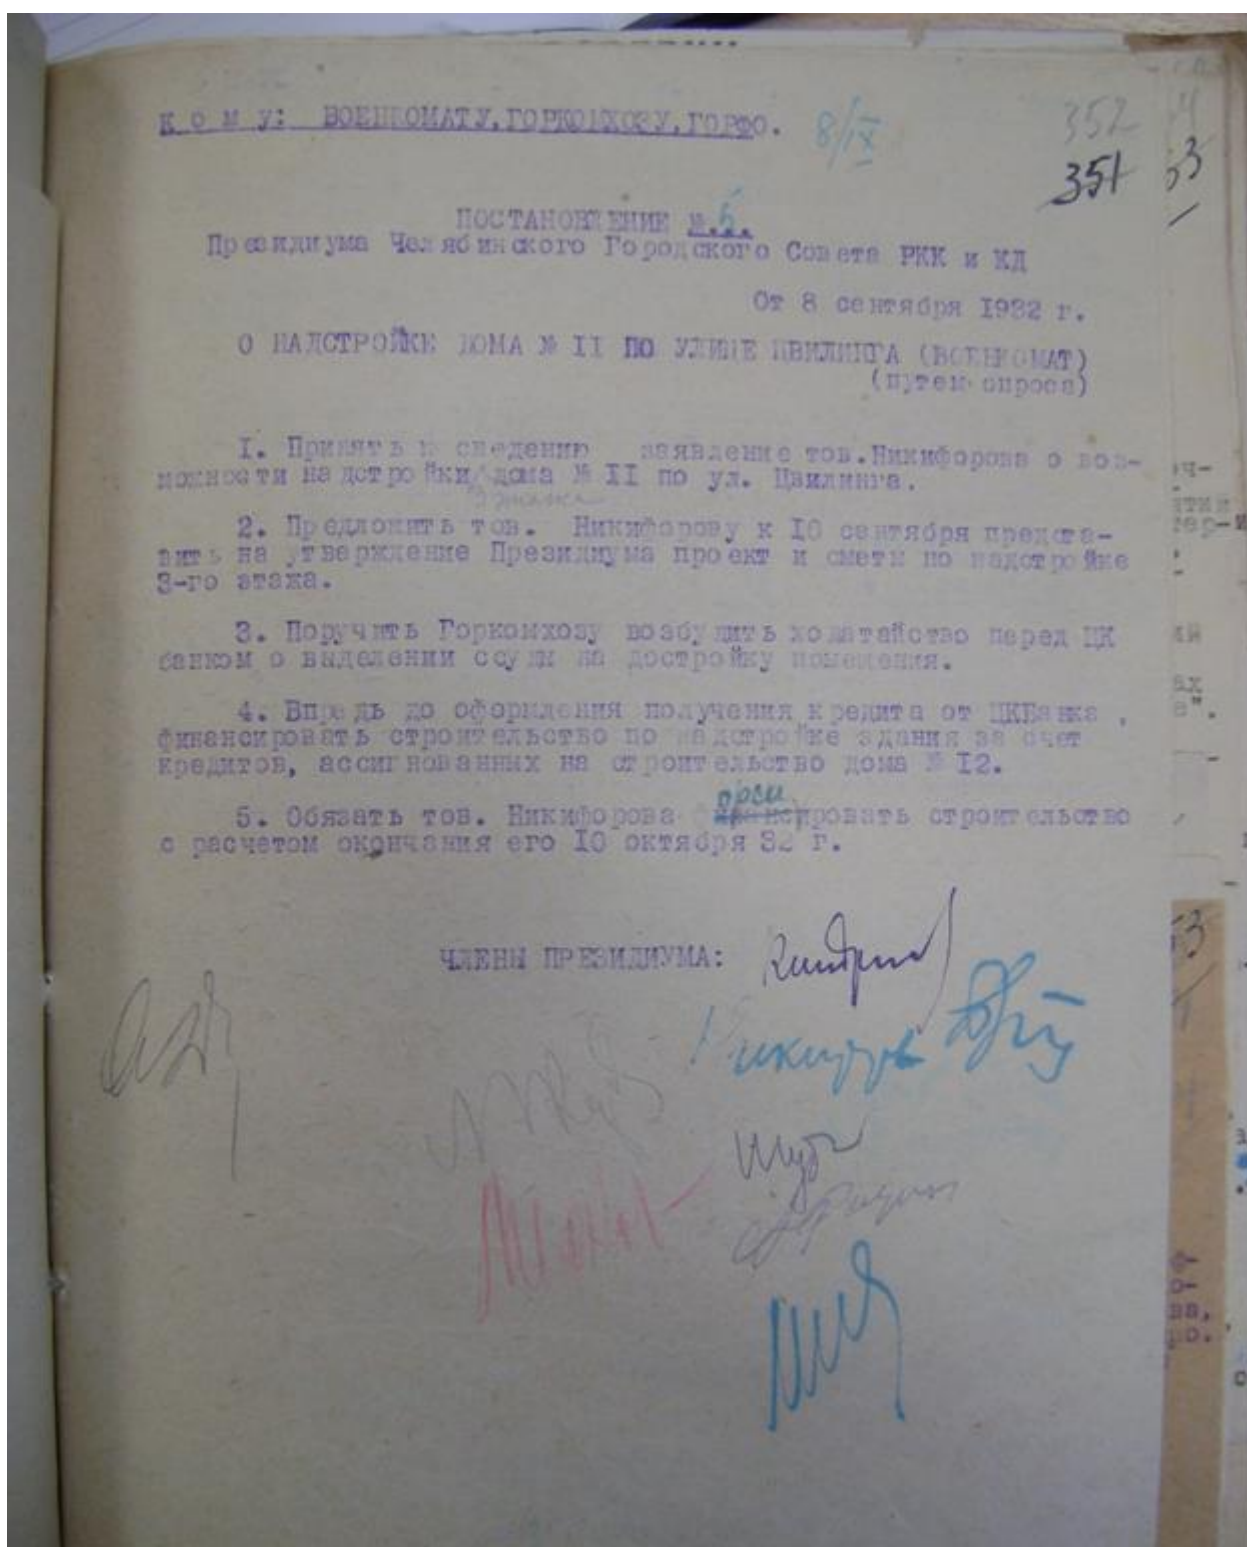 К о м у: ВОЕНКОМАТУ, ГОРКОМХОЗУ, ГОРФО. 8/IX
352
351
53
ПОСТАНОВЛЕНИЕ №.5.
Президиума Челябинского Городского Совета РКК и КД
От 8 сентября 1932 г.
О НАДСТРОЙКЕ ДОМА № II ПО УЛИЦЕ ЦВИЛИНГА (ВОЕНКОМАТ)
(путем опроса)
I. Принять к сведению заявление тов.Никифорова о воз-
можности надстройки дома № II по ул. Цвилинга.
3 этажа
2. Предложить тов. Никифорову к I0 сентября предста-
вить на утверждение Президиума проект и сметы по надстройке
3-го этажа.
3. Поручить Горкомхозу возбудить ходатайство перед ЦК
банком о выделении ссуды на достройку помещения.
4. Впредь до оформления получения кредита от ЦКБанка ,
финансировать строительство по надстройке здания за счет
кредитов, ассигнованных на строительство дома № I2.
5. Обязать тов. Никифорова форсировать строительство
с расчетом окончания его I0 октября 32 г.
ЧЛЕНЫ ПРЕЗИДИУМА: